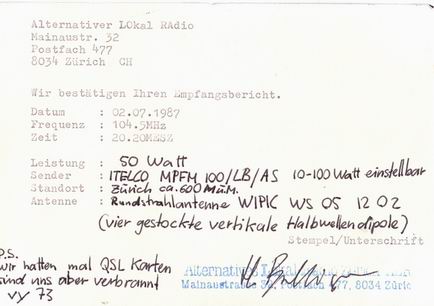 Alternativer LOkal RAdio
Mainaustr. 32
Postfach 477
8034 Zürich CH
Wir bestätigen Ihren Empfangsbericht.
Datum : 02.07.1987
Frequenz : 104.5MHz
Zeit : 20.20MESZ
Leistung : 50 Watt
Sender : ITELCO MPFM 100/LB/AS 10-100 Watt einstellbar
Standort : Zürich ca. 600 M.ü.M.
Antenne : Rundstrahlantenne WIPIC WS 05 12 02
(vier gestockte vertikale Halbwellendipole)
Stempel/Unterschrift
P.S.
wir hatten mal QSL Karten
sind uns aber verbrannt
vy 73
Alternatives
Mainaustrasse 32, Postfach 477, 8034 Zürich